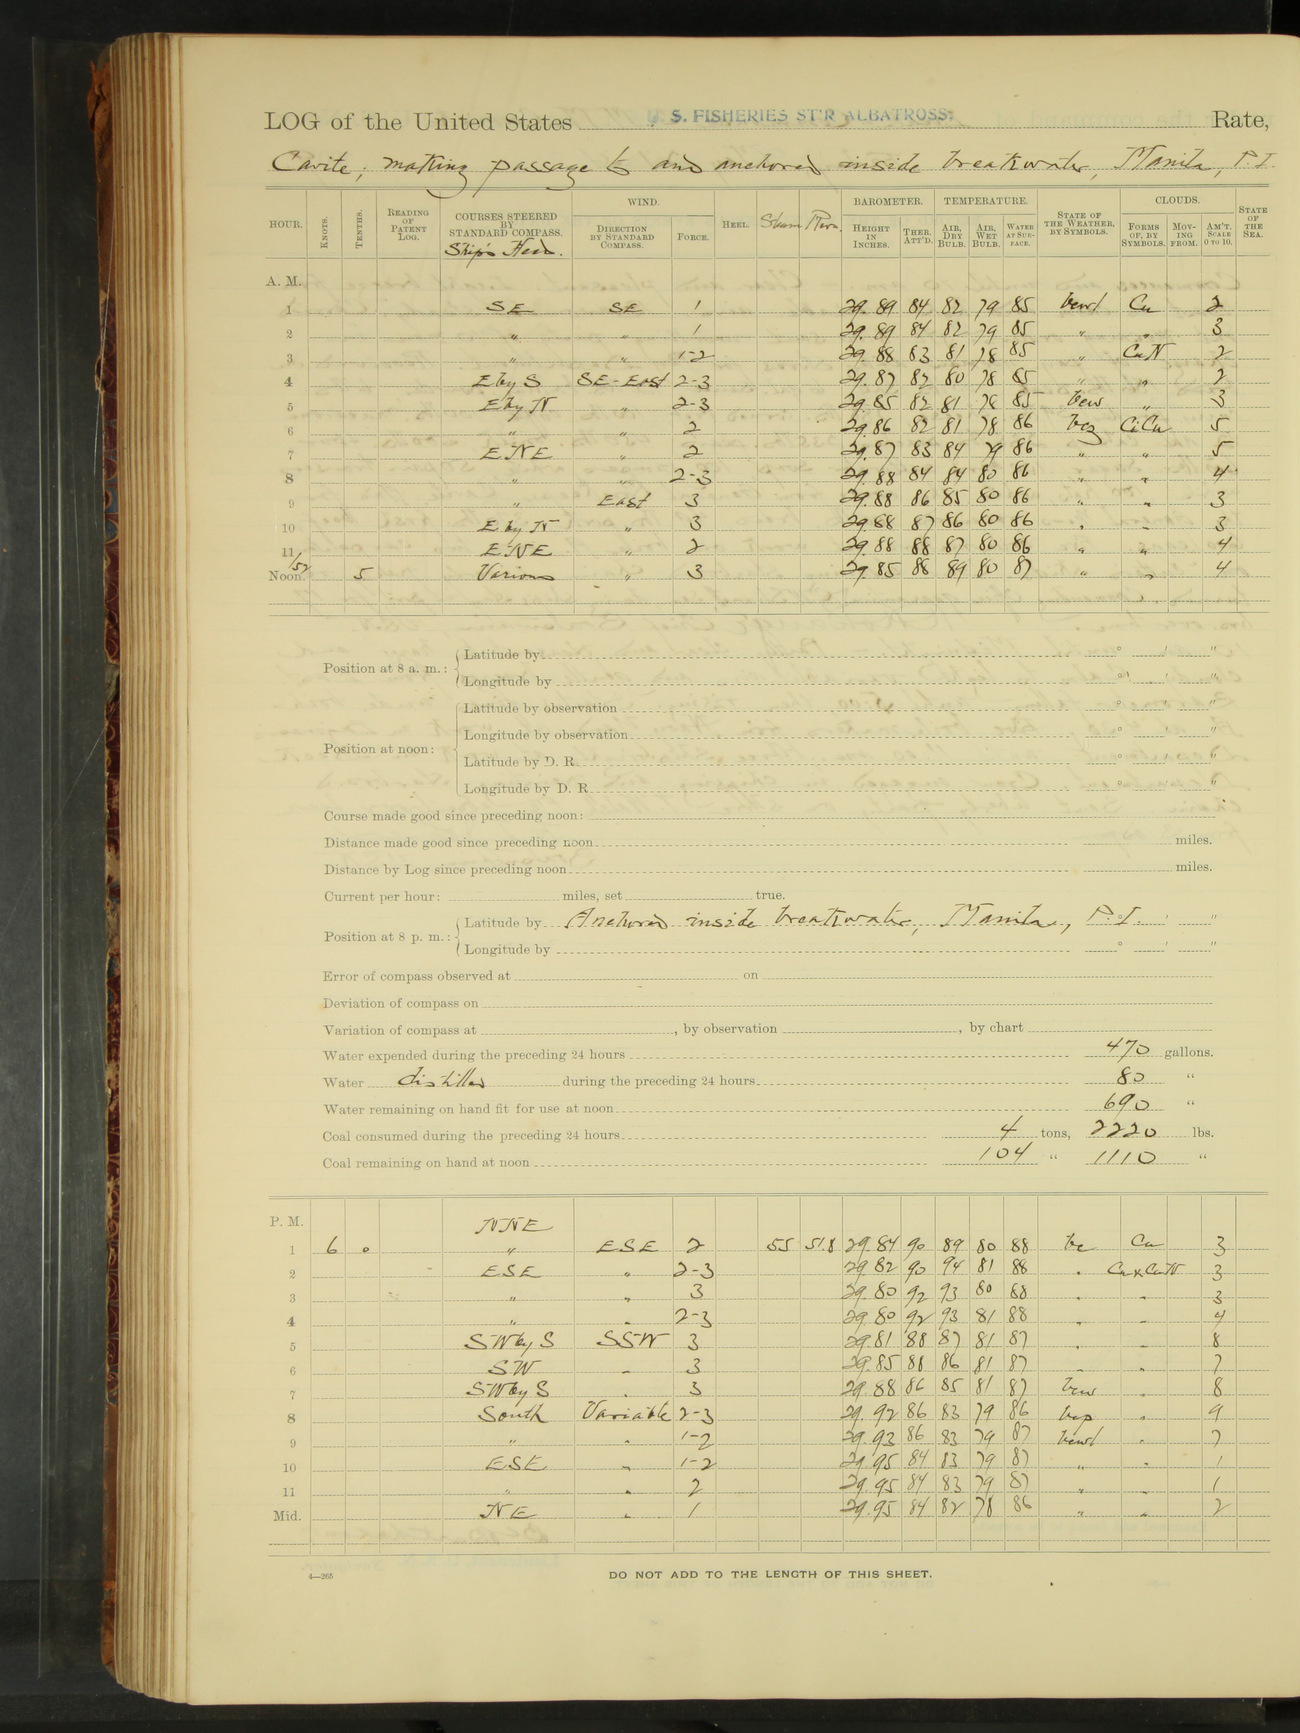 LOG of the United States U. S. FISHERIES ST'R ALBATROSS. Rate,
Cavite; making passage to and anchored inside breakwater, Manila, P.I.
HOUR. KNOTS. TENTHS. READING OF PATENT LOG. COURSES STEERED BY STANDARD COMPASS. Ship's Head. WIND. DIRECTION BY STANDARD COMPASS. FORCE. HEEL. Steam Revn. BAROMETER. HEIGHT IN INCHES. THER. ATT'D. TEMPERATURE. AIR, DRY BULB. AIR, WET BULB. WATER AT SURFACE. STATE OF THE WEATHER, BY SYMBOLS. CLOUDS. FORMS OF, BY SYMBOLS. MOVING FROM. AM'T. SCALE 0 TO 10. STATE OF THE SEA.
A. M.
1 SE SE 1 29.89 84 82 79 85 bcwl Cu 2
2 " " 1 29.89 84 82 79 85 " " 3
3 " " 1-2 29.88 83 81 78 85 " CuN 2
4 E by S SE-East 2-3 29.87 82 80 78 85 " " 2
5 E by N " 2-3 29.85 82 81 78 85 bcw " 3
6 " " 2 29.86 82 81 78 86 bcz CiCu 5
7 ENE " 2 29.87 83 84 79 86 " " 5
8 " " 2-3 29.88 84 84 80 86 " " 4
9 " East 3 29.88 86 85 80 86 " " 3
10 E by N " 3 29.88 87 86 80 86 " " 3
11 ENE " 2 29.88 88 87 80 86 " " 4
11/52
Noon. 5 Various " 3 29.85 88 89 80 87 " " 4
Position at 8 a. m.: Latitude by ° ' "
Longitude by ° ' "
Position at noon: Latitude by observation ° ' "
Longitude by observation ° ' "
Latitude by D. R. ° ' "
Longitude by D. R. ° ' "
Course made good since preceding noon:
Distance made good since preceding noon miles.
Distance by Log since preceding noon miles.
Current per hour: miles, set true.
Position at 8 p. m.: Latitude by Anchored inside breakwater, Manila, P.I. ° ' "
Longitude by ° ' "
Error of compass observed at on
Deviation of compass on
Variation of compass at , by observation , by chart
Water expended during the preceding 24 hours 470 gallons.
Water distilled during the preceding 24 hours 80 "
Water remaining on hand fit for use at noon 690 "
Coal consumed during the preceding 24 hours 4 tons, 2220 lbs.
Coal remaining on hand at noon 104 " 1110 "
P. M. NNE
1 6 0 " ESE 2 55 51.8 29.84 90 89 80 88 bc Cu 3
2 ESE " 2-3 29.82 90 94 81 88 " Cu & CuN 3
3 " " 3 29.80 92 93 80 88 " " 3
4 " " 2-3 29.80 92 93 81 88 " " 4
5 SW by S SSW 3 29.81 88 87 81 87 " " 8
6 SW " 3 29.85 88 86 81 87 " " 7
7 SW by S " 3 29.88 86 85 81 87 bcw " 8
8 South Variable 2-3 29.92 86 83 79 86 bcp " 9
9 " " 1-2 29.93 86 83 79 87 bcwl " 7
10 ESE " 1-2 29.95 84 83 79 87 " " 1
11 " " 2 29.95 84 83 79 87 " " 1
Mid. NE " 1 29.95 84 82 78 86 " " 2
4—265
DO NOT ADD TO THE LENGTH OF THIS SHEET.